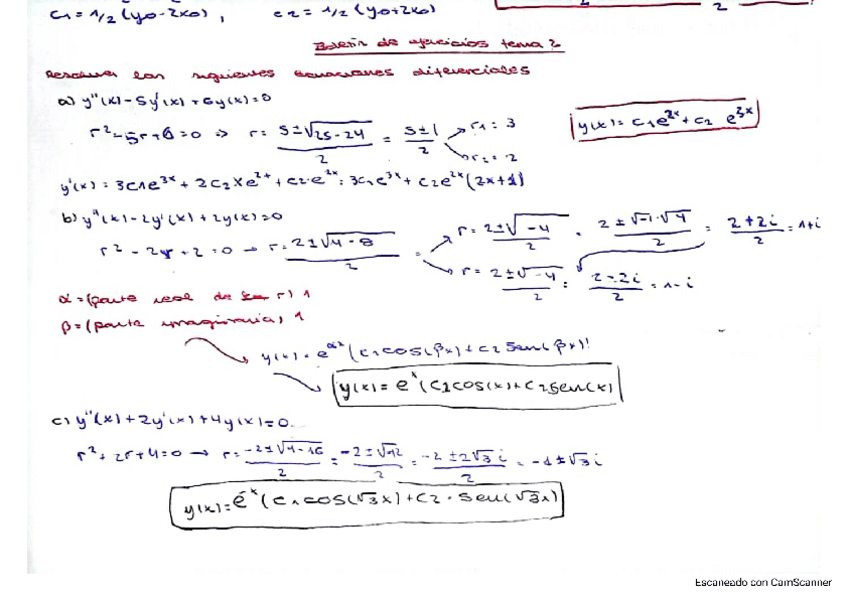 c1 = 1/2 (y0 - 2x0), c2 = 1/2 (y0 + 2x0)
2
Boletín de ejercicios tema 2
Resolver las siguientes ecuaciones diferenciales
a) y''(x) - 5y'(x) + 6y(x) = 0
r² - 5r + 6 = 0 ⇒ r = (5 ± √(25 - 24))/2 = (5 ± 1)/2 → r1 = 3, r2 = 2
y(x) = c1e^2x + c2 e^3x
y'(x) = 3c1e^3x + 2c2xe^2x + c2·e^2x = 3c1e^3x + c2e^2x(2x+1)
b) y''(x) - 2y'(x) + 2y(x) = 0
r² - 2r + 2 = 0 → r = (2 ± √(4 - 8))/2 =
r = (2 ± √-4)/2 = (2 ± √-1·√4)/2 = (2 + 2i)/2 = 1 + i
r = (2 ± √-4)/2 = (2 - 2i)/2 = 1 - i
α = (parte real de r) 1
β = (parte imaginaria) 1
y(x) = e^αx (c1cos(βx) + c2 sen(βx))
y(x) = e^x (c1cos(x) + c2sen(x)
c) y''(x) + 2y'(x) + 4y(x) = 0.
r² + 2r + 4 = 0 → r = (-2 ± √(4 - 16))/2 = (-2 ± √-12)/2 = (-2 ± 2√3 i)/2 = -1 ± √3 i
y(x) = e^-x (c1cos(√3x) + c2 · sen(√3x)
Escaneado con CamScanner